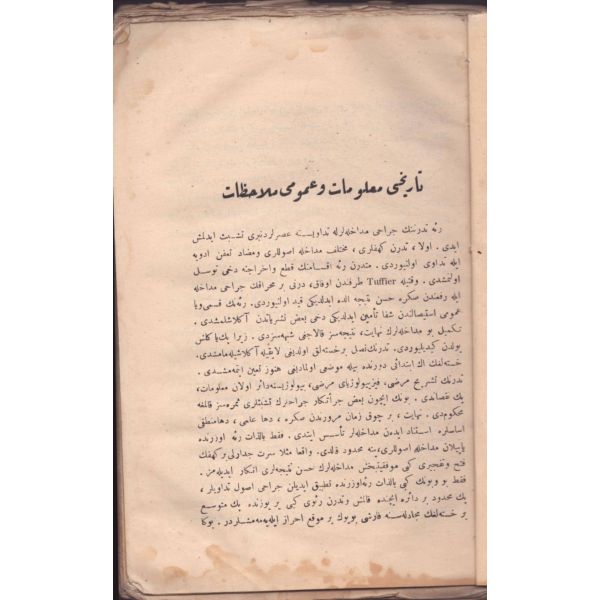 تاريخى معلومات و عمومى ملاحظات
رئه تدرننك جراحى مداخله‌لرله تداويسنه عصرلردنبرى تشبث ايدلمش
ايدى . اولا ، تدرن كهفلرى ، مختلف مداخله اصوللرى ومضاد تعفن ادويه
ايله تداوى اولنيوردى . متدرن رئه اقسامنك قطع واخراجنه دخى توسل
اولنمشدى . وقتيله Tuffier طرفندن اوفاق ، درنى بر محراقك جراحى مداخله
ايله رفعندن صكره حسن نتيجه الده ايدلديكى قيد اولنيوردى . رئه‌نك قسمى ويا
عمومى استيصالندن شفا تأمين ايدلديكى دخى بعض نشرياتدن آكلاشلمشدى .
تكميل بو مداخله‌لرك نهايت ، نتيجه‌سز قالاجنى شبهه‌سزدى . زيرا پك ياكلش
يولدن كيديليوردى . تدرنك نصل برخسته‌لق اولديغى لايقيله آكلاشيله‌مامشدى .
خسته‌لغك اك ابتدائى دورنده بيله موضعى اولماديغى هنوز تعين ايتمه‌مشدى .
تدرنك تشريح مرضى ، فيزيولوژياى مرضى ، بيولوژيسنه‌دائر اولان معلومات ،
پك نقصاندى . بونك ايچون بعض جرأتكار جراحلرك تشبثلرى ثمره‌سز قالمغه
محكومدى . نهايت ، بر چوق زمان مرورندن صكره ، دها علمى ، دهامنطقى
اساسلره استناد ايدن مداخله‌لر تأسس ايتدى . فقط بالذات رئه اوزرنده
ياپيلان مداخله اصوللرى ، ينه محدود قالدى . واقعا مثلا سرت جدارلى بركهفك
فتح وتفجيرى كبى موفقيتبخش مداخله‌لرك حسن نتيجه‌لرى انكار ايديله‌مز .
فقط بو وبونك كبى بالذات رئه‌اوزرنده تطبيق ايديلن جراحى اصول تداويلر ،
پك محدود بر دائره ايچنده قالمش وتدرن رئوى كبى ير يوزنده پك متوسع
بر خسته‌لغك مجادله‌سنه قارشى بويوك بر موقع احراز ايليه‌مه‌مشلردر . بوكا